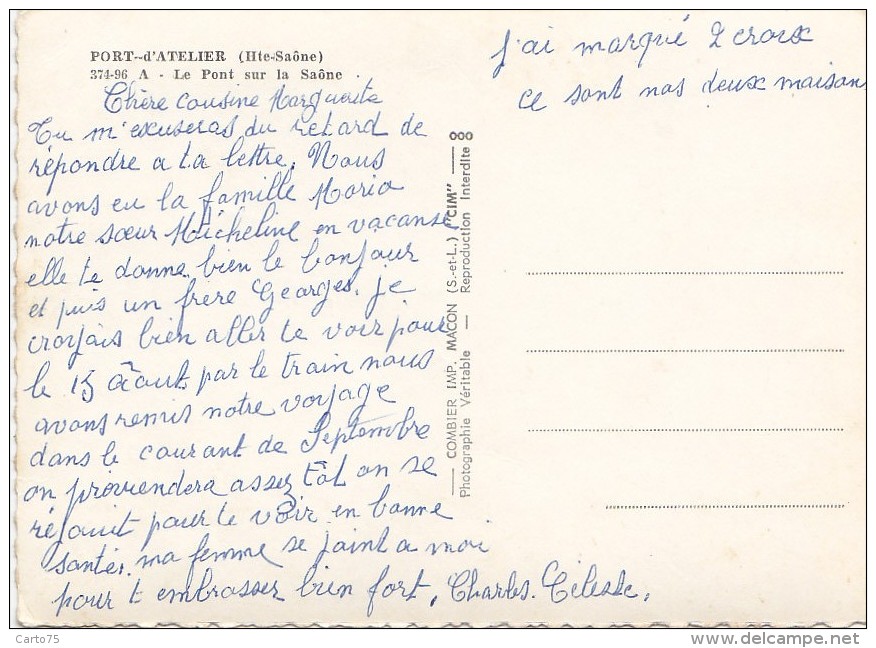 PORT-d'ATELIER (Hte-Saône)
374-96 A - Le Pont sur la Saône
j'ai marqué 2 croix
ce sont nos deux maison
Chère cousine Marguerite
Tu m'exuseras du retard de
répondre a ta lettre. Nous
avons eu la famille Maria
notre sœur Micheline en vacanse
elle te donne bien le bonjour
et puis un frère Georges. je
croyais bien aller te voir pour
le 15 Août par le train nous
avons remis notre voyage
dans le courant de Septembre
on proviendera assez tôt on se
réjouit pour te voir en bonne
santé. ma femme se joint a moi
pour t embrasser bien fort, Charles. Céleste.
COMBIER IMP. MACON (S.-et-L.) "CIM"
Photographie Véritable — Reproduction Interdite
Carto75
www.delcampe.net